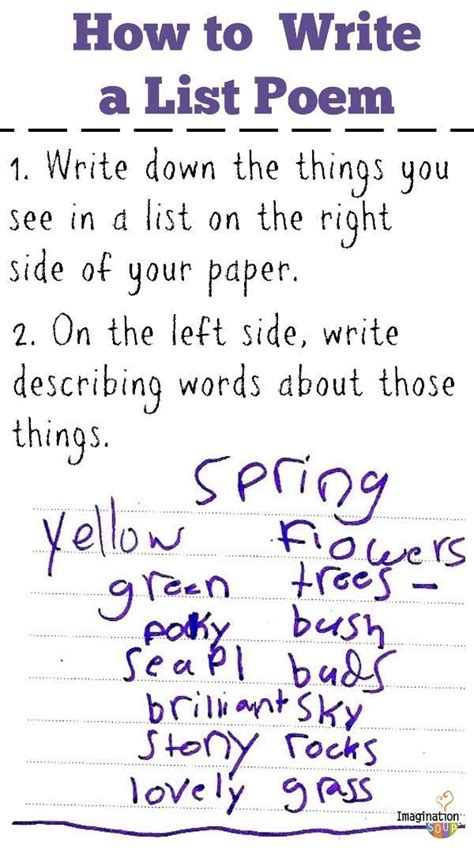 How to Write
a List Poem
1. Write down the things you
see in a list on the right
side of your paper.
2. On the left side, write
describing words about those
things.
Spring
yellow flowers
green trees
poky bush
Seapl buds
brilliant sky
Stony rocks
lovely grass
Imagination
SOUP